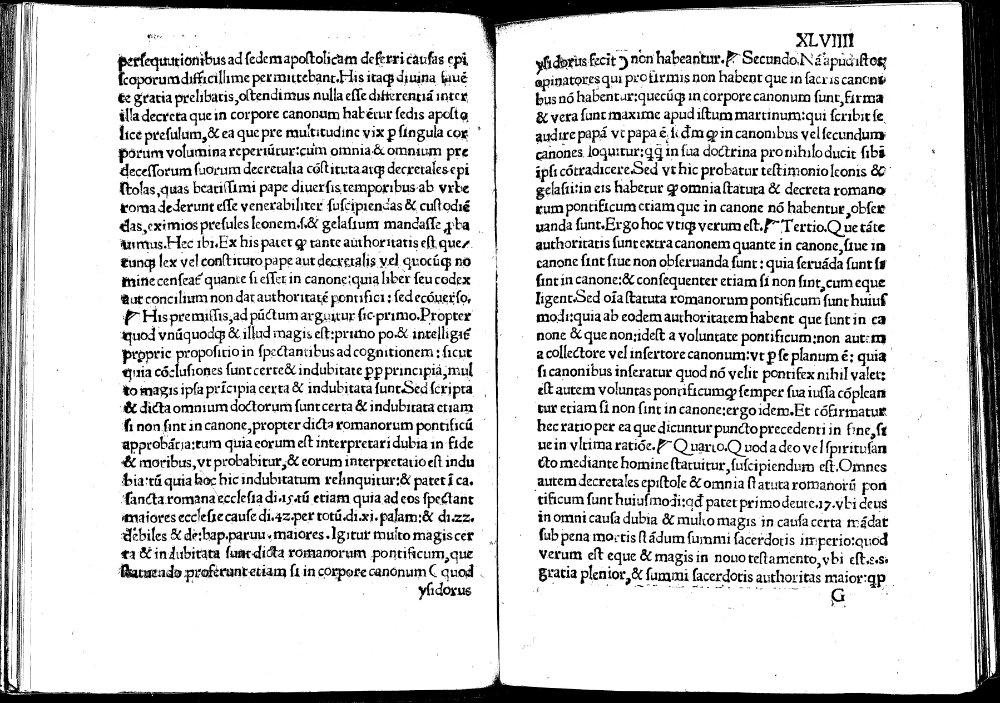 persequutionibus ad sedem apostolicam deferri causas epi
scoporum difficillime permittebant. His itaq; diuina fauē
te gratia prelibatis, ostendimus nulla esse differentiā inter
illa decreta que in corpore canonum habētur sedis aposto
lice presulum, & ea que pre multitudine vix ꝑ singula cor
porum volumina reperiūtur: cum omnia & omnium pre
decessorum suorum decretalia cōstituta atq; decretales epi
stolas, quas beatissimi pape diuersis temporibus ab vrbe
roma dederunt esse venerabiliter suscipiendas & custodiē
das, eximios presules leonem .s. & gelasium mandasse ꝓba
uimus. Hec ibi. Ex his patet ꝙ tante authoritatis est que/
cunq; lex vel constituto pape aut decretalis vel quocūq; no
mine censeat̄ quante si esset in canone: quia liber seu codex
aut concilium non dat authoritatē pontifici: sed ecōuerso.
☛ His premissis, ad pūctum arguitur sic. primo. Propter
quod vnūquodq; & illud magis est: primo po. & intelligit̄
proprie propositio in spectantibus ad cognitionem: sicut
quia cōclusiones sunt certe & indubitate ꝓp principia, mul
to magis ipsa prīcipia certa & indubitata sunt. Sed scripta
& dicta omnium doctorum sunt certa & indubitata etiam
si non sint in canone, propter dicta romanorum pontificū
approbātia: tum quia eorum est interpretari dubia in fide
& moribus, vt probabitur, & eorum interpretatio est indu
bia: tū quia hoc hic indubitatum relinquitur: & patet ī ca.
sancta romana ecclesia di. 15. tū etiam quia ad eos spectant
maiores ecclesie cause di. 42. per totū. di. xi. palam: & di. 22.
debiles & de: bap. paruu. maiores. Igitur multo magis cer
ta & indubitata sunt dicta romanorum pontificum, que
statuendo proferunt etiam si in corpore canonum ( quod
ysidorus
XLVIIII
ysidorus fecit ) non habeantur. ☛ Secundo. Nā apud istos
opinatores qui pro firmis non habent que in sacris canoni
bus nō habentur: quecūq; in corpore canonum sunt, firma
& vera sunt maxime apud istum martinum: qui scribit se
audire papā vt papa ē. s. dm̄ ꝙ in canonibus vel secundum
canones loquitur: qq̄ in sua doctrina pro nihilo ducit sibi
ipsi cōtradicere. Sed vt hic probatur testimonio leonis &
gelasii: in eis habetur ꝙ omnia statuta & decreta romano
rum pontificum etiam que in canone nō habentur, obser
uanda sunt. Ergo hoc vtiq; verum est. ☛ Tertio. Que tāte
authoritatis sunt extra canonem quante in canone, siue in
canone sint siue non obseruanda sunt: quia seruāda sunt si
sint in canone: & consequenter etiam si non sint, cum eque
ligent. Sed oīa statuta romanorum pontificum sunt huius
modi: quia ab eodem authoritatem habent que sunt in ca
none & que non: idest a voluntate pontificum: non autem
a collectore vel insertore canonum: vt ꝑ se planum ē: quia
si canonibus inseratur quod nō velit pontifex nihil valet:
est autem voluntas pontificum ꝙ semper sua iussa cōplean
tur etiam si non sint in canone: ergo idem. Et cōfirmatur
hec ratio per ea que dicuntur puncto precedenti in fine, si
ue in vltima ratiōe. ☛ Quarto. Quod a deo vel spiritu san
cto mediante homine statuitur, suscipiendum est. Omnes
autem decretales epistole & omnia statuta romanorū pon
tificum sunt huiusmodi: qd̄ patet primo deute. 17. vbi deus
in omni causa dubia & multo magis in causa certa mādat
sub pena mortis stādum summi sacerdotis imperio: quod
verum est eque & magis in nouo testamento, vbi est. e. s.
gratia plenior, & summi sacerdotis authoritas maior: qp
G